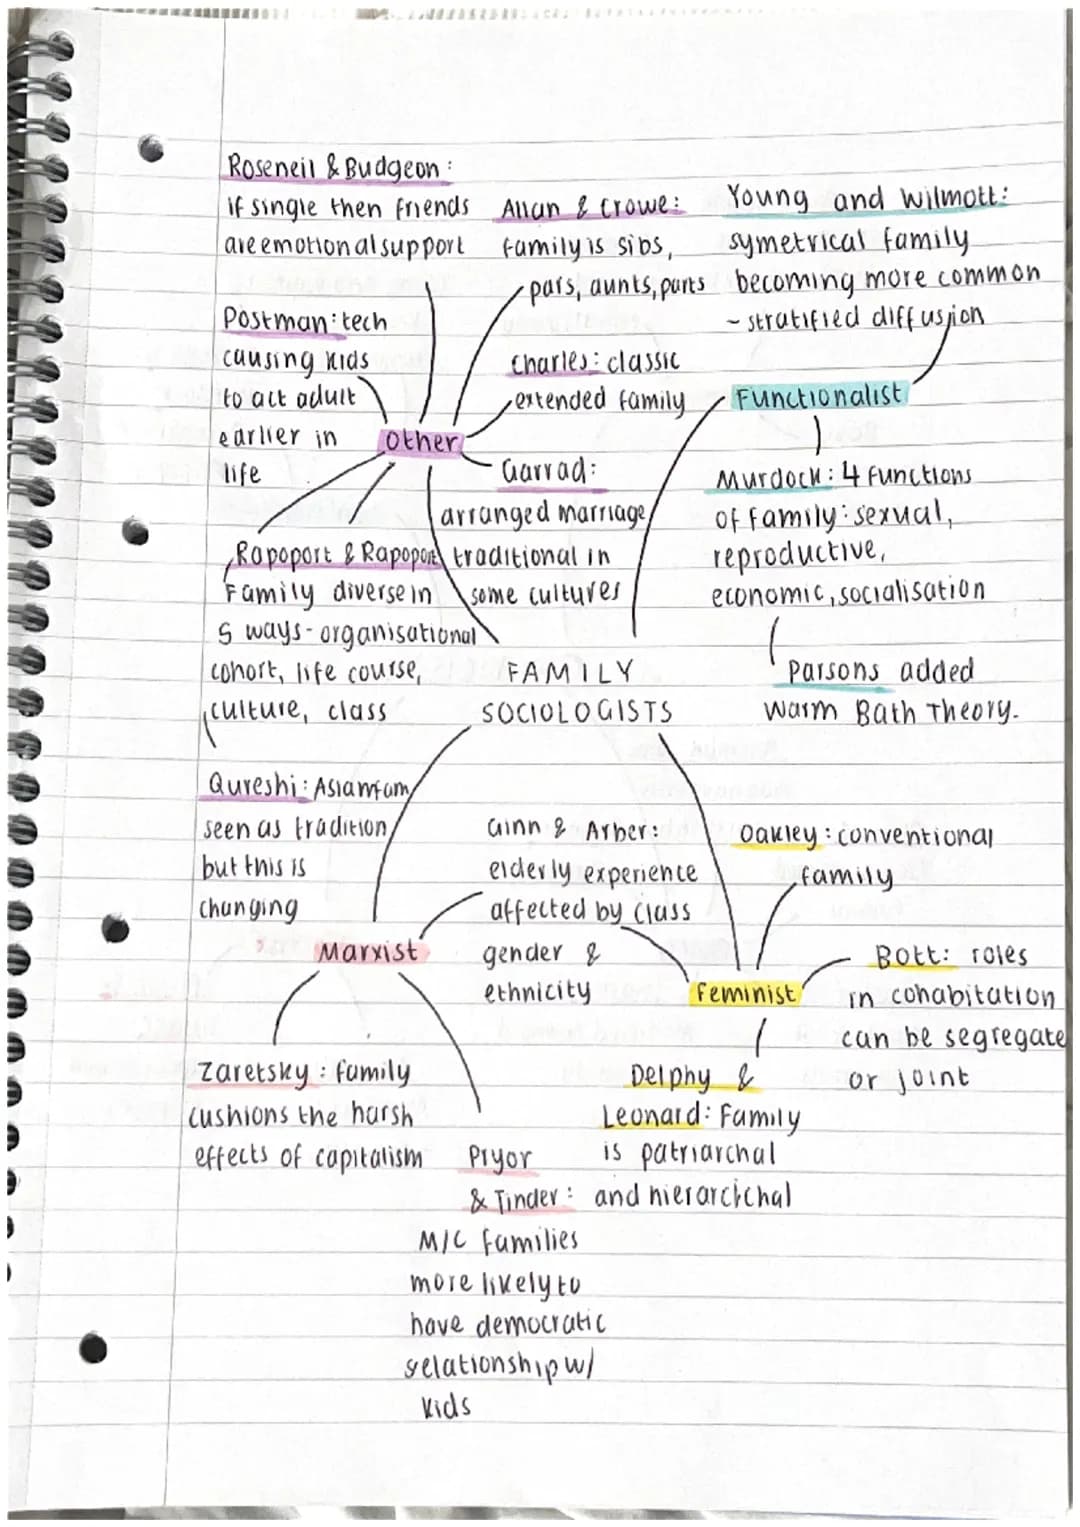 Roseneil & Budgeon:
if single then friends
are emotional support
Allan & Crowe:
family is sibs,
pars, aunts, parts
Young and Wilmott:
symetrical family
becoming more common
- stratified diffusion
Postman: tech
causing kids
to act adult
earlier in
life
Charles: classic
extended family
Functionalist
Other
Garrad:
arranged marriage
traditional in
some cultures
Murdock: 4 functions
of family: sexual,
reproductive,
economic, socialisation
Rapoport & Rapoport
Family diverse in
5 ways - organisational
cohort, life course,
culture, class
Parsons added
Warm Bath Theory.
FAMILY
SOCIOLOGISTS
Qureshi: Asian fam
seen as tradition
but this is
changing
Ginn & Arber:
elderly experience
affected by class
gender &
ethnicity
Oakley: conventional
family
Marxist
Feminist
Bott: roles
in cohabitation
can be segregate
or joint
Zaretsky: family
cushions the harsh
effects of capitalism
Delphy &
Leonard: Family
is patriarchal
and hierarcichal
Pryor
& Tinder:
M/C families
more likely to
have democratic
relationship w/
kids